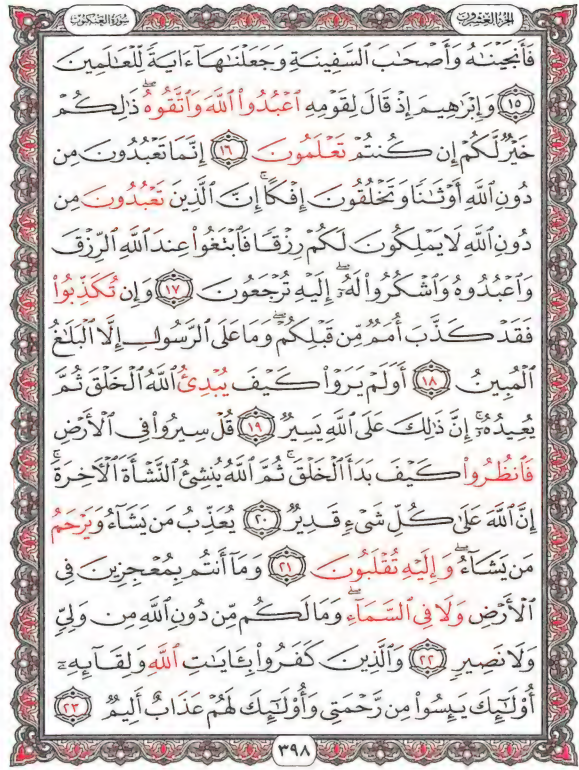 سُورَةُ العَنكَبُوت
الجُزْءُ العِشْرُون
فَأَنجَيْنَٰهُ وَأَصْحَٰبَ ٱلسَّفِينَةِ وَجَعَلْنَٰهَآ ءَايَةً لِّلْعَٰلَمِينَ
١٥ وَإِبْرَٰهِيمَ إِذْ قَالَ لِقَوْمِهِ ٱعْبُدُوا۟ ٱللَّهَ وَٱتَّقُوهُ ۖ ذَٰلِكُمْ
خَيْرٌ لَّكُمْ إِن كُنتُمْ تَعْلَمُونَ ١٦ إِنَّمَا تَعْبُدُونَ مِن
دُونِ ٱللَّهِ أَوْثَٰنًا وَتَخْلُقُونَ إِفْكًا ۚ إِنَّ ٱلَّذِينَ تَعْبُدُونَ مِن
دُونِ ٱللَّهِ لَا يَمْلِكُونَ لَكُمْ رِزْقًا فَٱبْتَغُوا۟ عِندَ ٱللَّهِ ٱلرِّزْقَ
وَٱعْبُدُوهُ وَٱشْكُرُوا۟ لَهُۥٓ ۖ إِلَيْهِ تُرْجَعُونَ ١٧ وَإِن تُكَذِّبُوا۟
فَقَدْ كَذَّبَ أُمَمٌ مِّن قَبْلِكُمْ ۖ وَمَا عَلَى ٱلرَّسُولِ إِلَّا ٱلْبَلَٰغُ
ٱلْمُبِينُ ١٨ أَوَلَمْ يَرَوْا۟ كَيْفَ يُبْدِئُ ٱللَّهُ ٱلْخَلْقَ ثُمَّ
يُعِيدُهُۥٓ ۚ إِنَّ ذَٰلِكَ عَلَى ٱللَّهِ يَسِيرٌ ١٩ قُلْ سِيرُوا۟ فِى ٱلْأَرْضِ
فَٱنظُرُوا۟ كَيْفَ بَدَأَ ٱلْخَلْقَ ۚ ثُمَّ ٱللَّهُ يُنشِئُ ٱلنَّشْأَةَ ٱلْءَاخِرَةَ ۚ
إِنَّ ٱللَّهَ عَلَىٰ كُلِّ شَىْءٍ قَدِيرٌ ٢٠ يُعَذِّبُ مَن يَشَآءُ وَيَرْحَمُ
مَن يَشَآءُ ۖ وَإِلَيْهِ تُقْلَبُونَ ٢١ وَمَآ أَنتُم بِمُعْجِزِينَ فِى
ٱلْأَرْضِ وَلَا فِى ٱلسَّمَآءِ ۖ وَمَا لَكُم مِّن دُونِ ٱللَّهِ مِن وَلِىٍّ
وَلَا نَصِيرٍ ٢٢ وَٱلَّذِينَ كَفَرُوا۟ بِـَٔايَٰتِ ٱللَّهِ وَلِقَآئِهِۦٓ
أُو۟لَٰٓئِكَ يَئِسُوا۟ مِن رَّحْمَتِى وَأُو۟لَٰٓئِكَ لَهُمْ عَذَابٌ أَلِيمٌ ٢٣
٣٩٨